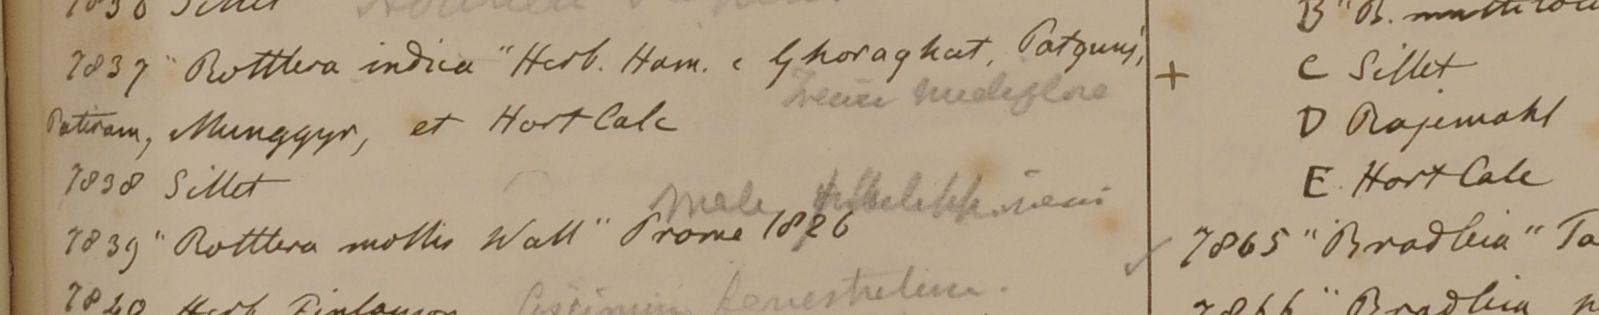 7836 Sillet
7837 "Rottlera indica" Herb. Ham. e Ghoraghat, Patgunj,
Patiram, Munggyr, et Hort Calc
7838 Sillet
7839 "Rottlera mollis Wall" Prome 1826
7840 Herb Finlayson
B "B.
+ C Sillet
D Rajemahl
E. Hort Calc
7865 "Bradleia" Ta
7866 "Bradleia p